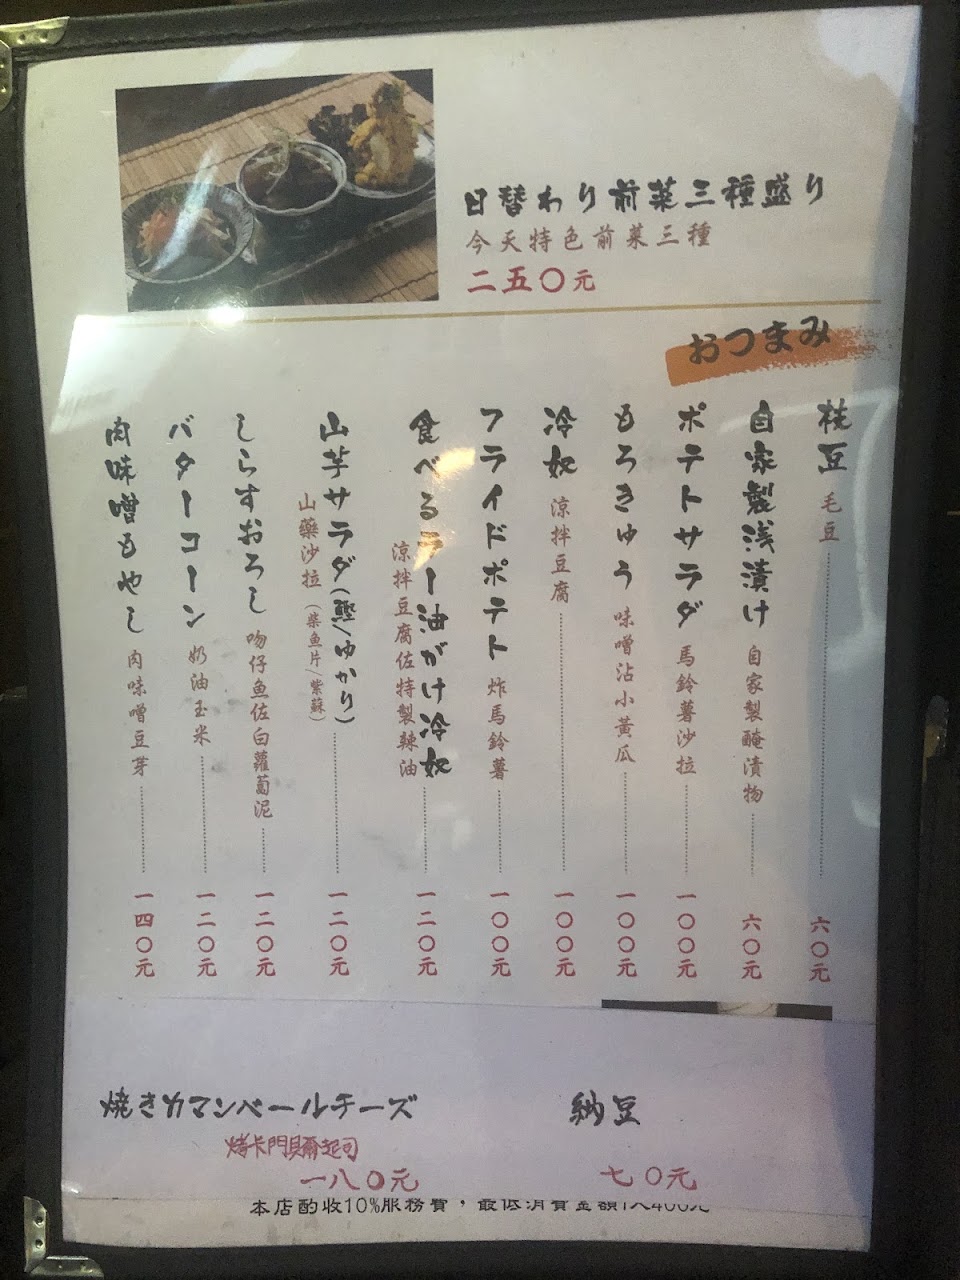 日替わり前菜三種盛り
今天特色前菜三種
二五〇元
おつまみ
枝豆 毛豆 六〇元
自家製浅漬け 自家製醃漬物 六〇元
ポテトサラダ 馬鈴薯沙拉 一〇〇元
もろきゅう 味噌沾小黃瓜 一〇〇元
冷奴 涼拌豆腐 一〇〇元
フライドポテト 炸馬鈴薯 一〇〇元
食べるラー油がけ冷奴 一二〇元
涼拌豆腐佐特製辣油
山芋サラダ(鰹/ゆかり) 一二〇元
山藥沙拉(柴魚片/紫蘇)
しらすおろし 吻仔魚佐白蘿蔔泥 一二〇元
バターコーン 奶油玉米 一二〇元
肉味噌もやし 肉味噌豆芽 一四〇元
焼きカマンベールチーズ
烤卡門貝爾起司
一八〇元
納豆
七〇元
本店酌收10%服務費，最低消費金額1人400元